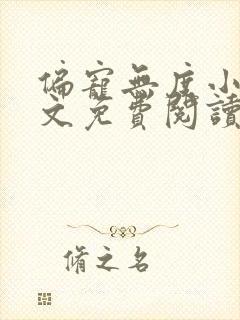 偏寵無度小
文免費閱讀
脩之名